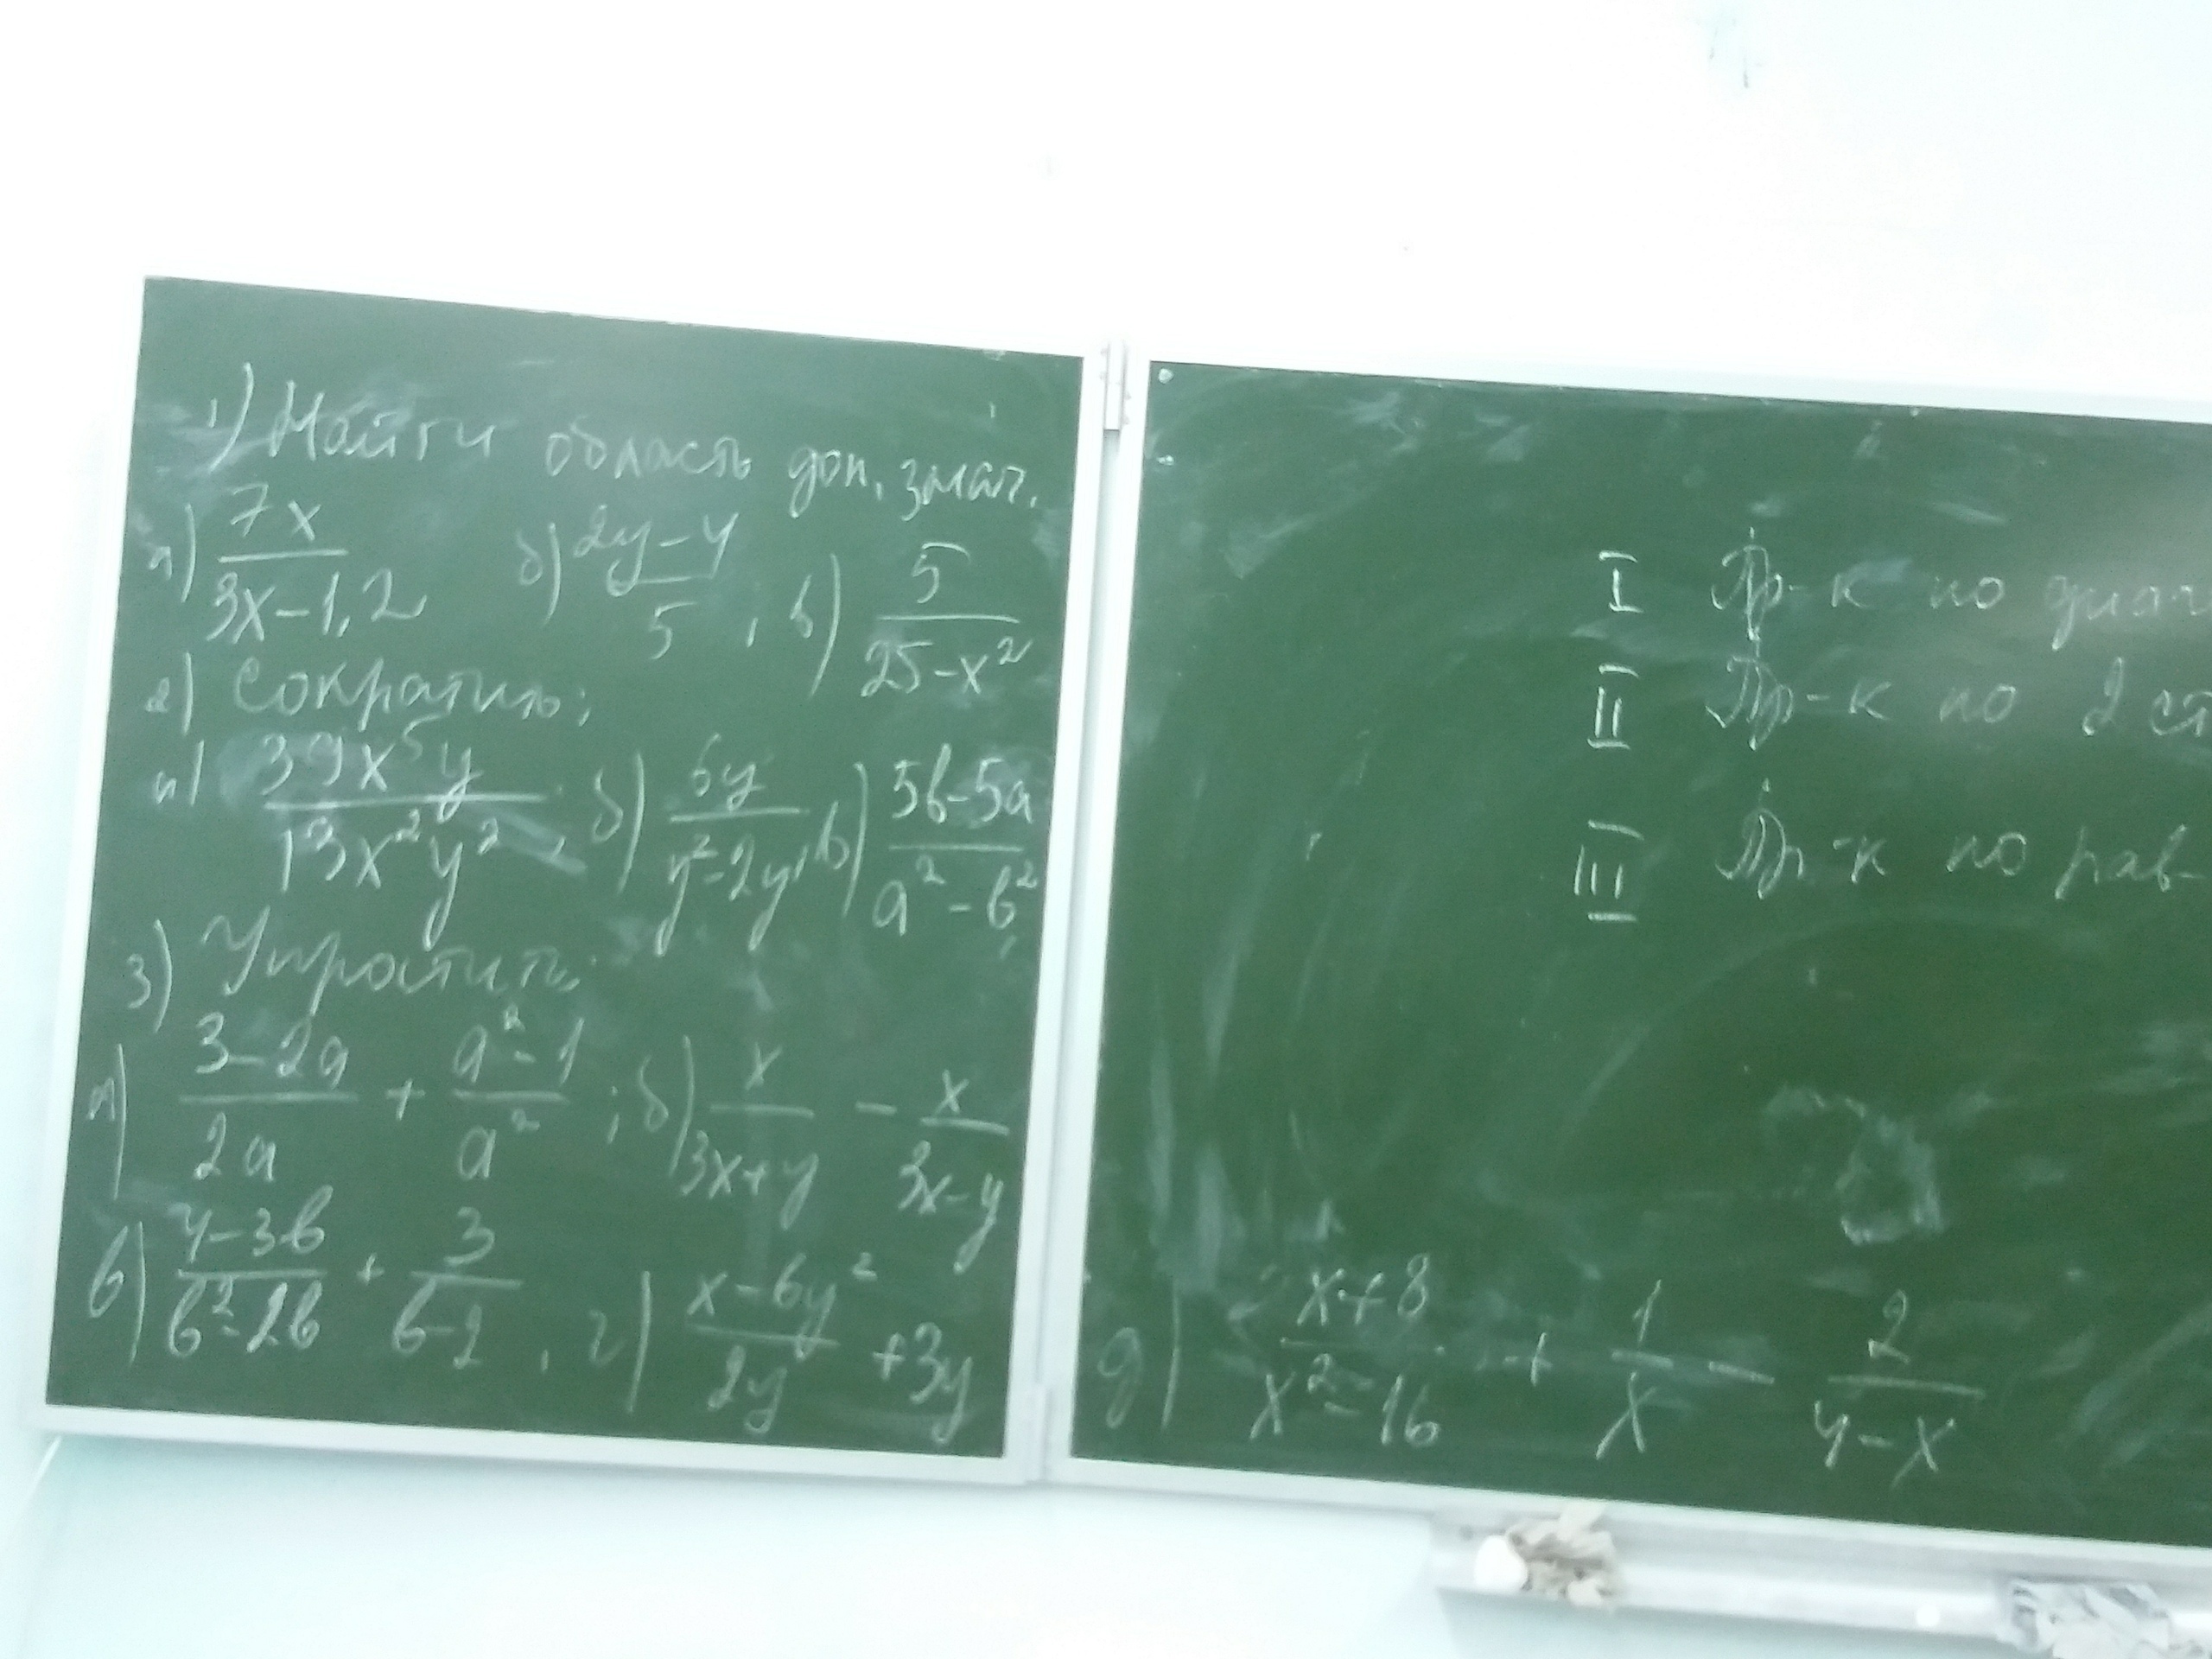 1) Найти область доп. знач.
а) 7x / (3x-1,2) б) (2y-4) / 5, в) 5 / (25-x²)
2) Сократить:
а) 39x⁵y / (13x²y²), б) 6y / (y²-2y), в) (5b-5a) / (a²-b²)
3) Упростить
а) (3-2a) / 2a + (a²-1) / a²; б) x / (3x+y) - x / (3x-y)
в) (4-3b) / (b²-2b) + 3 / (b-2), г) (x-6y²) / 2y + 3y
I Пр-к по диаг
II Пр-к по 2 ст
III Пр-к по рав-
д) (x+8) / (x²-16) + 1 / x - 2 / (4-x)